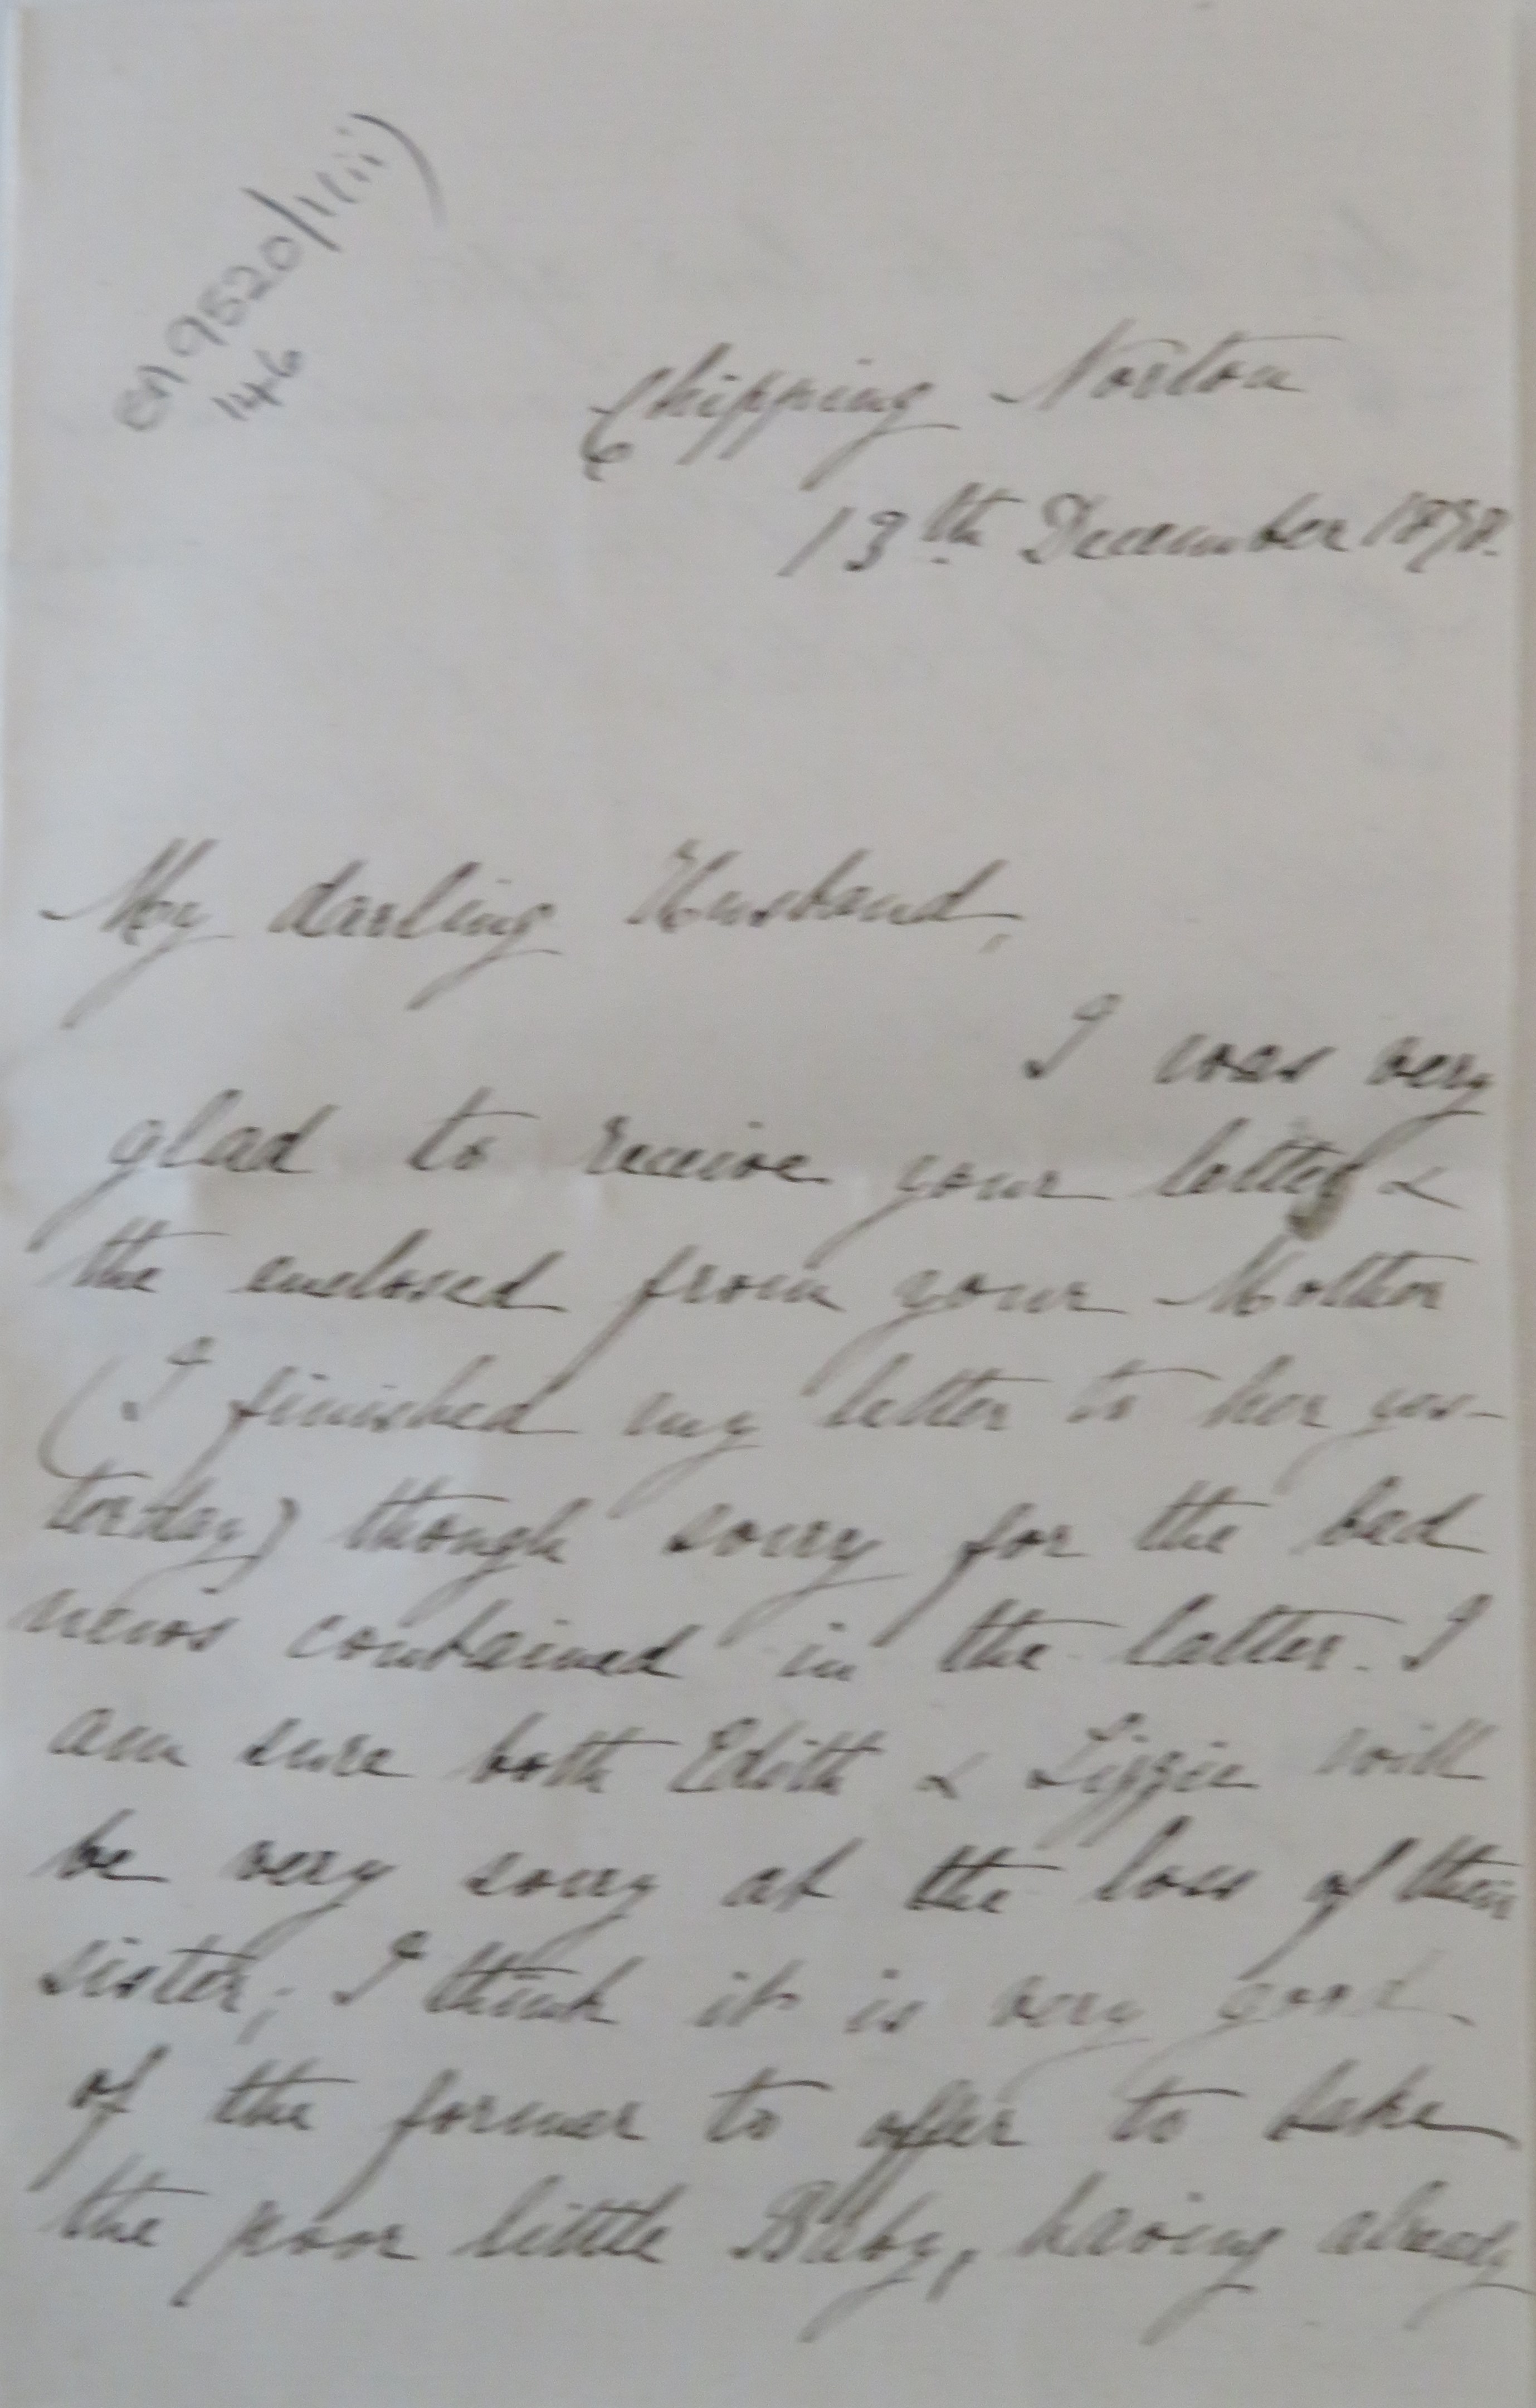 en 9520/1(iii)
146
Chipping Norton
13th December 1878.
My darling Husband,
I was very
glad to receive your letter &
the enclosed from your Mother
(I finished my letter to her yes-
terday) though sorry for the bad
news contained in the latter. I
am sure both Edith & Lizzie will
be very sorry at the loss of their
sister; I think it is very good
of the former to offer to take
the poor little Baby, having already